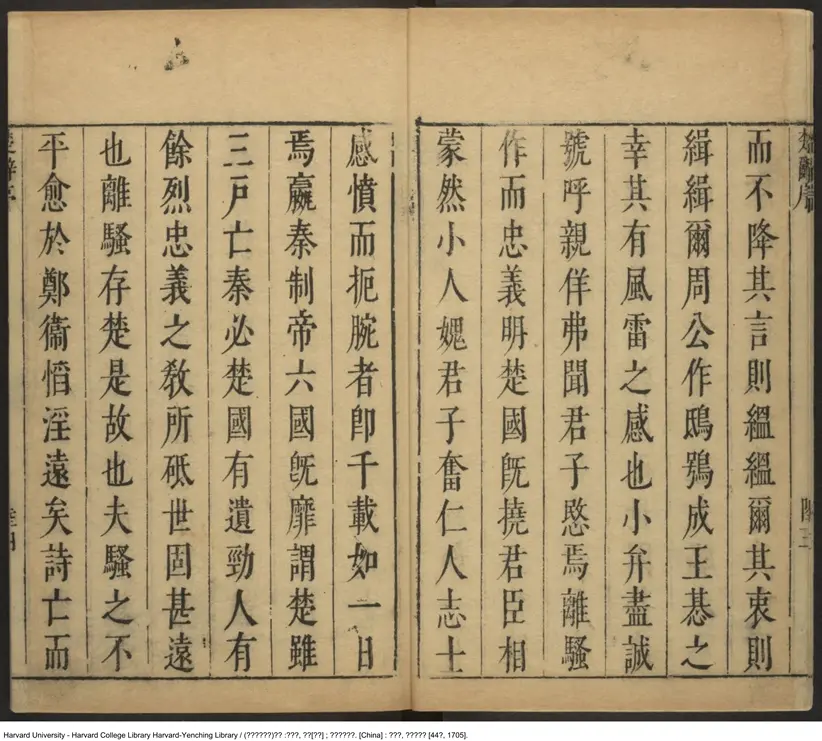 而不降其言則緼緼爾其衷則
緝緝爾周公作鴟鴞成王惎之
幸其有風雷之感也小弁盡誠
號呼親佯弗聞君子愍焉離騷
作而忠義明楚國旣撓君臣相
蒙然小人媿君子奮仁人志士
感憤而扼腕者卽千載如一日
焉嬴秦制帝六國旣靡謂楚雖
三戸亡秦必楚國有遺勁人有
餘烈忠義之敎所砥世固甚遠
也離騷存楚是故也夫騷之不
平愈於鄭衞慆淫遠矣詩亡而
Harvard University - Harvard College Library Harvard-Yenching Library / (??????)?? :???, ??[??] ; ??????. [China] : ???, ????? [44?, 1705].